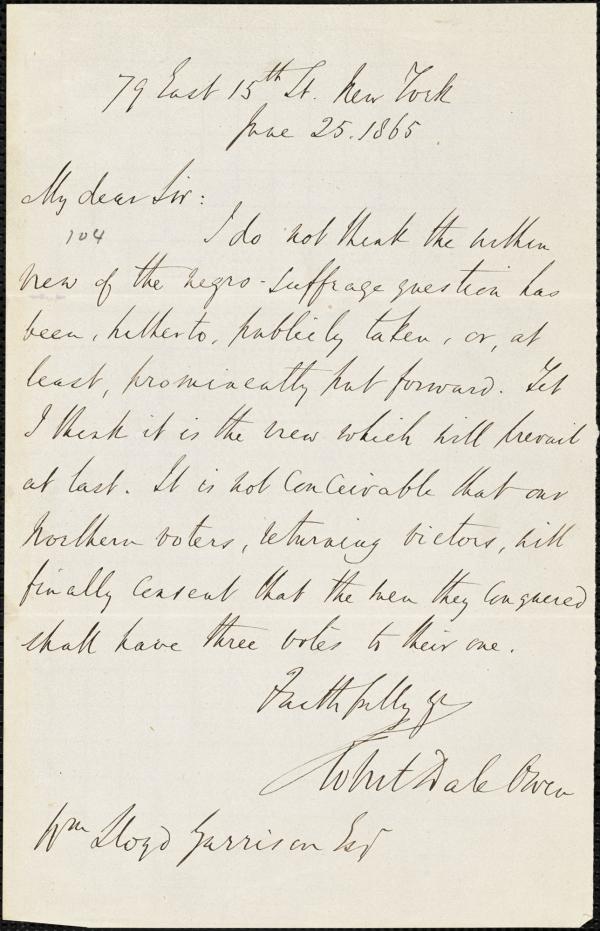 79 East 15th St. New York
June 25. 1865
My dear Sir:
104
I do not think the within
view of the negro-suffrage question has
been, hitherto, publicly taken, or, at
least, prominently put forward. Yet
I think it is the view which will prevail
at last. It is not conceivable that our
Northern voters, returning victors, will
finally consent that the men they conquered
shall have three votes to their one.
Faithfully yr
Robert Dale Owen
Wm Lloyd Garrison Esqr